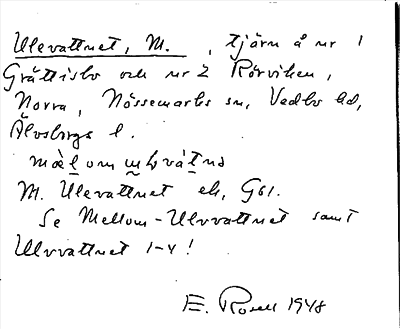 Ulevattnet, M. , tjärn å nr 1
Grättisbo och nr 2 Rörviken,
Norra, Nössemarks sn, Vedbo hd,
Älvsborgs l.
M. Ulevattnet ek, G61.
Se Mellom-Ulvvattnet samt
Ulvvattnet 1-4!
E. Rosell 1948